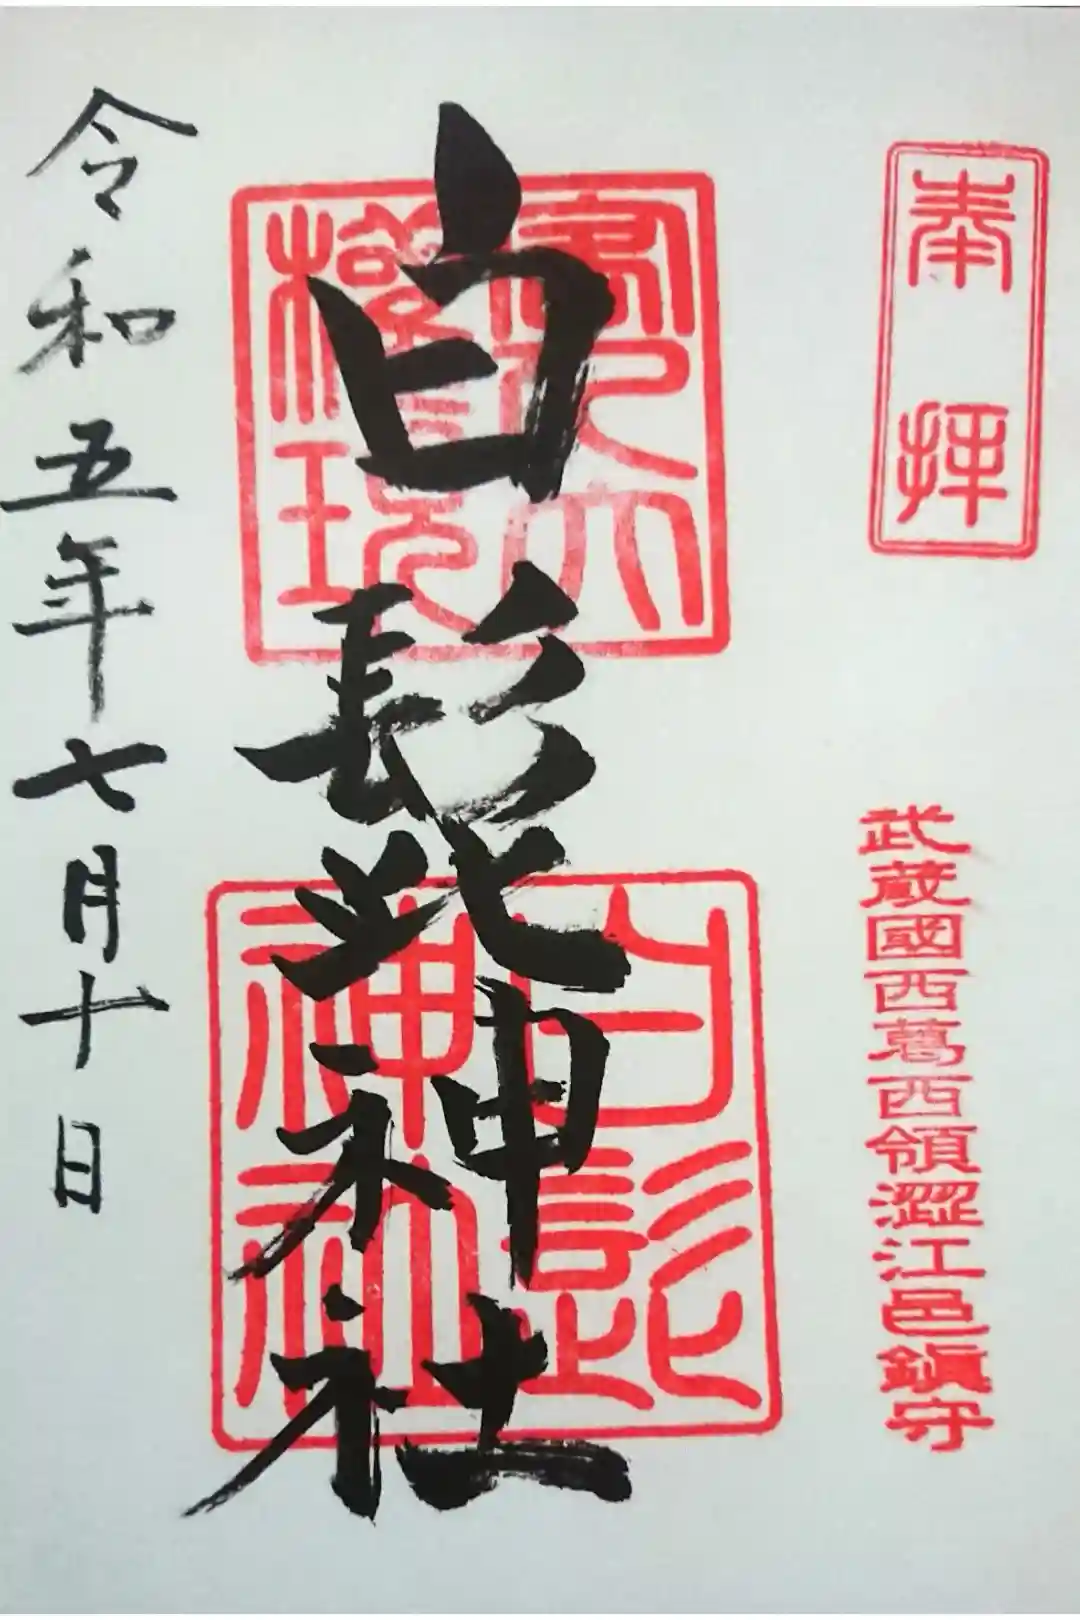 奉拝
武蔵國西葛西領澀江邑鎭守
白髭神社
客人大權現
白髭神社
令和五年七月十日